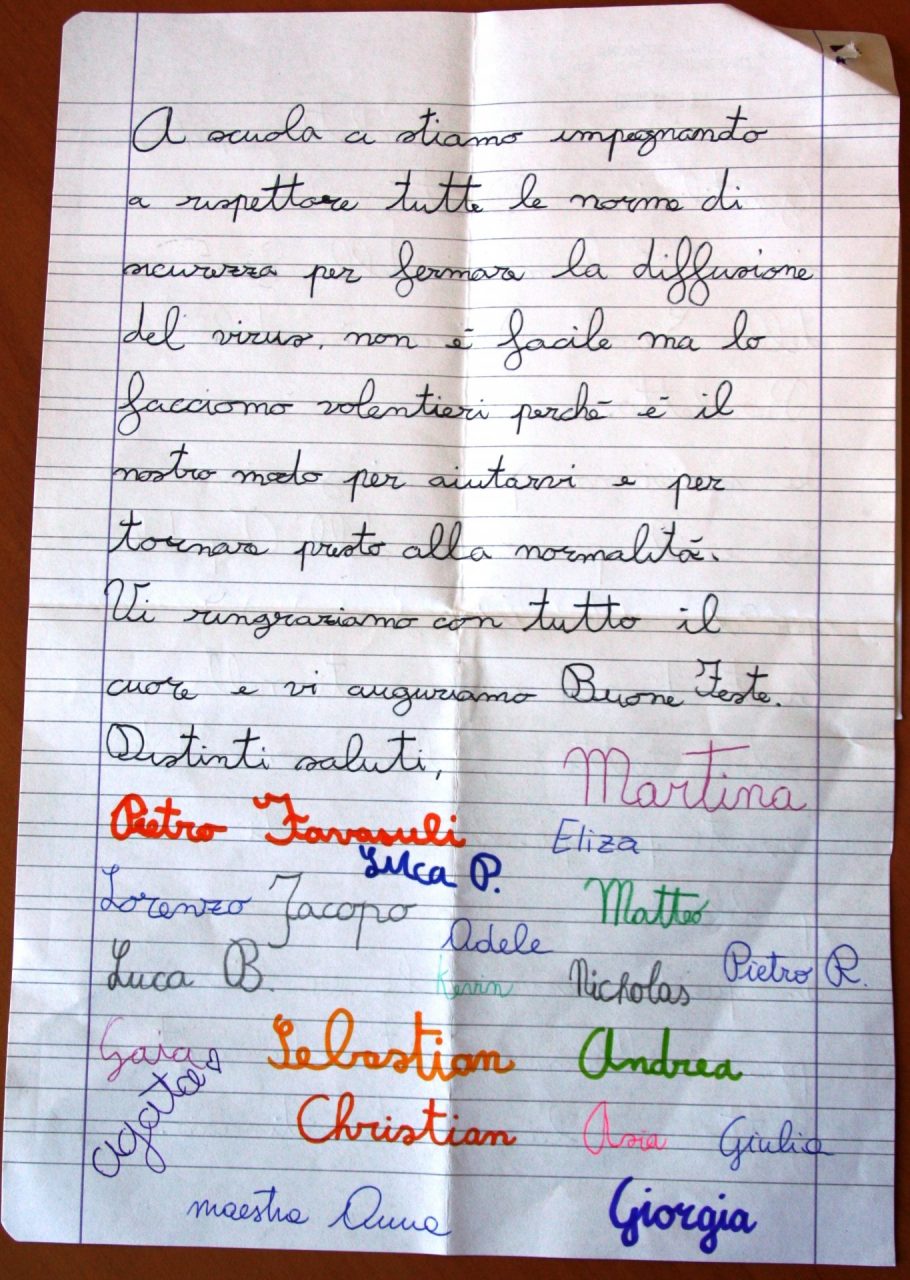 A scuola ci stiamo impegnando
a rispettare tutte le norme di
sicurezza per fermare la diffusione
del virus, non è facile ma lo
facciamo volentieri perchè è il
nostro modo per aiutarvi e per
tornare presto alla normalità.
Vi ringraziamo con tutto il
cuore e vi auguriamo Buone Feste.
Distinti saluti,
Martina
Pietro Favasuli
Eliza
Luca P.
Lorenzo Jacopo Matteo
Adele
Luca B. Kevin Nicholas Pietro R.
Gaia Sebastian Andrea
Agata
Christian Asia Giulia
maestra Anna Giorgia